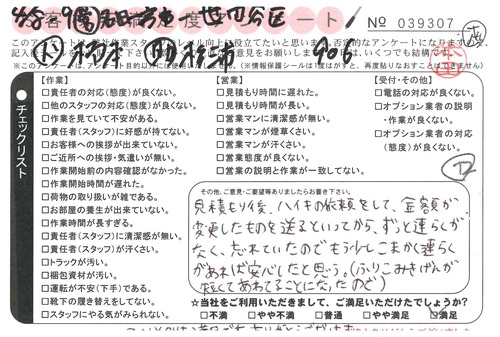 No 039307
このアンケートは弊社作業スタッフのレベル向上に役立てたいと思います。否定的なアンケートになりますが、
意見をお願いします。ご意見はいくつでも結構です。
※このアンケートは、アンケート目的以外には使用いたしません。(※情報保護シール1度はがすと、再度貼りなおすことはできません)
906
チェックリスト
【作業】
□責任者の対応(態度)が良くない。
□他のスタッフの対応(態度)が良くない。
□作業を見ていて不安がある。
□責任者(スタッフ)に好感が持てない。
□お客様への挨拶が出来ていない。
□ご近所への挨拶・気遣いが無い。
□作業開始前の内容確認がなかった。
□作業開始時間が遅れた。
□荷物の取り扱いが雑である。
□お部屋の養生が出来ていない。
□作業時間が長すぎる。
□責任者(スタッフ)に清潔感が無い。
□責任者(スタッフ)が汗くさい。
□トラックが汚い。
□梱包資材が汚い。
□運転が不安(下手)である。
□靴下の履き替えをしてない。
□スタッフにやる気がみられない。
【営業】
□見積もり時間に遅れた。
□見積もり時間が長い。
□営業マンに清潔感が無い。
□営業マンが煙草くさい。
□営業マンが汗くさい。
□営業態度が良くない。
□営業の説明と作業が一致してない。
【受付・その他】
□電話の対応が良くない。
□オプション業者の説明
・作業が良くない。
□オプション業者の対応
(態度)が良くない。
その他、ご意見・ご要望等ありましたらお書き下さい。
見積もり後、ハイキの依頼をして、金額が
変更したものを送るといってから、ずっと連らくが
なく、忘れていたのでもう少しこまかく連らく
があれば安心したと思う。(ふりこみきげんが
短くてあわてることになったので)
☆当社をご利用いただきまして、ご満足いただけたでしょうか?
□不満 □やや不満 □普通 □やや満足 □満足